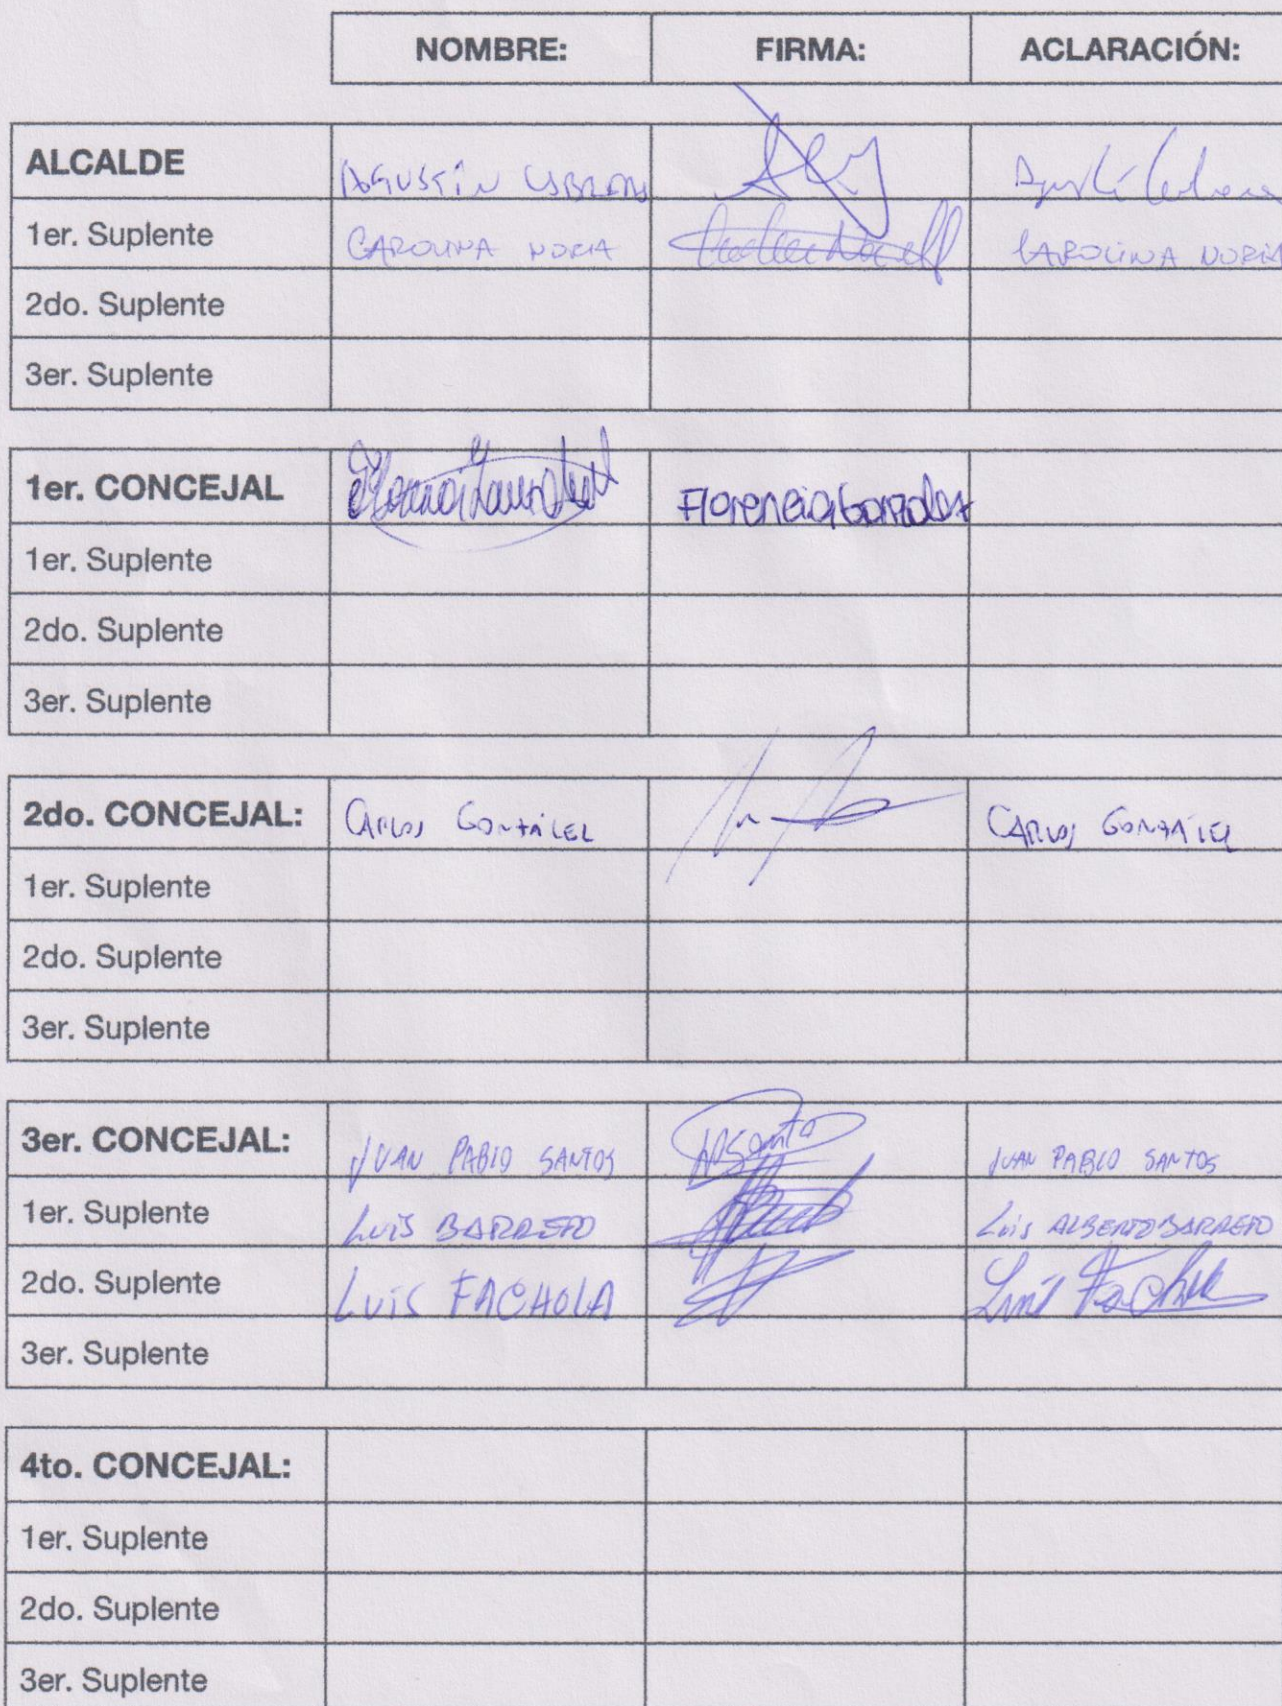 NOMBRE: FIRMA: ACLARACIÓN:
ALCALDE AGUSTÍN CABRERA Agustín Cabrera
1er. Suplente CAROLINA NORIA CAROLINA NORIA
2do. Suplente
3er. Suplente
1er. CONCEJAL Florencia González
1er. Suplente
2do. Suplente
3er. Suplente
2do. CONCEJAL: CARLOS GONZÁLEZ CARLOS GONZÁLEZ
1er. Suplente
2do. Suplente
3er. Suplente
3er. CONCEJAL: JUAN PABLO SANTOS JPSantos JUAN PABLO SANTOS
1er. Suplente LUIS BARRETO LUIS ALBERTO BARRETO
2do. Suplente LUIS FACHOLA Luis Fachola
3er. Suplente
4to. CONCEJAL:
1er. Suplente
2do. Suplente
3er. Suplente